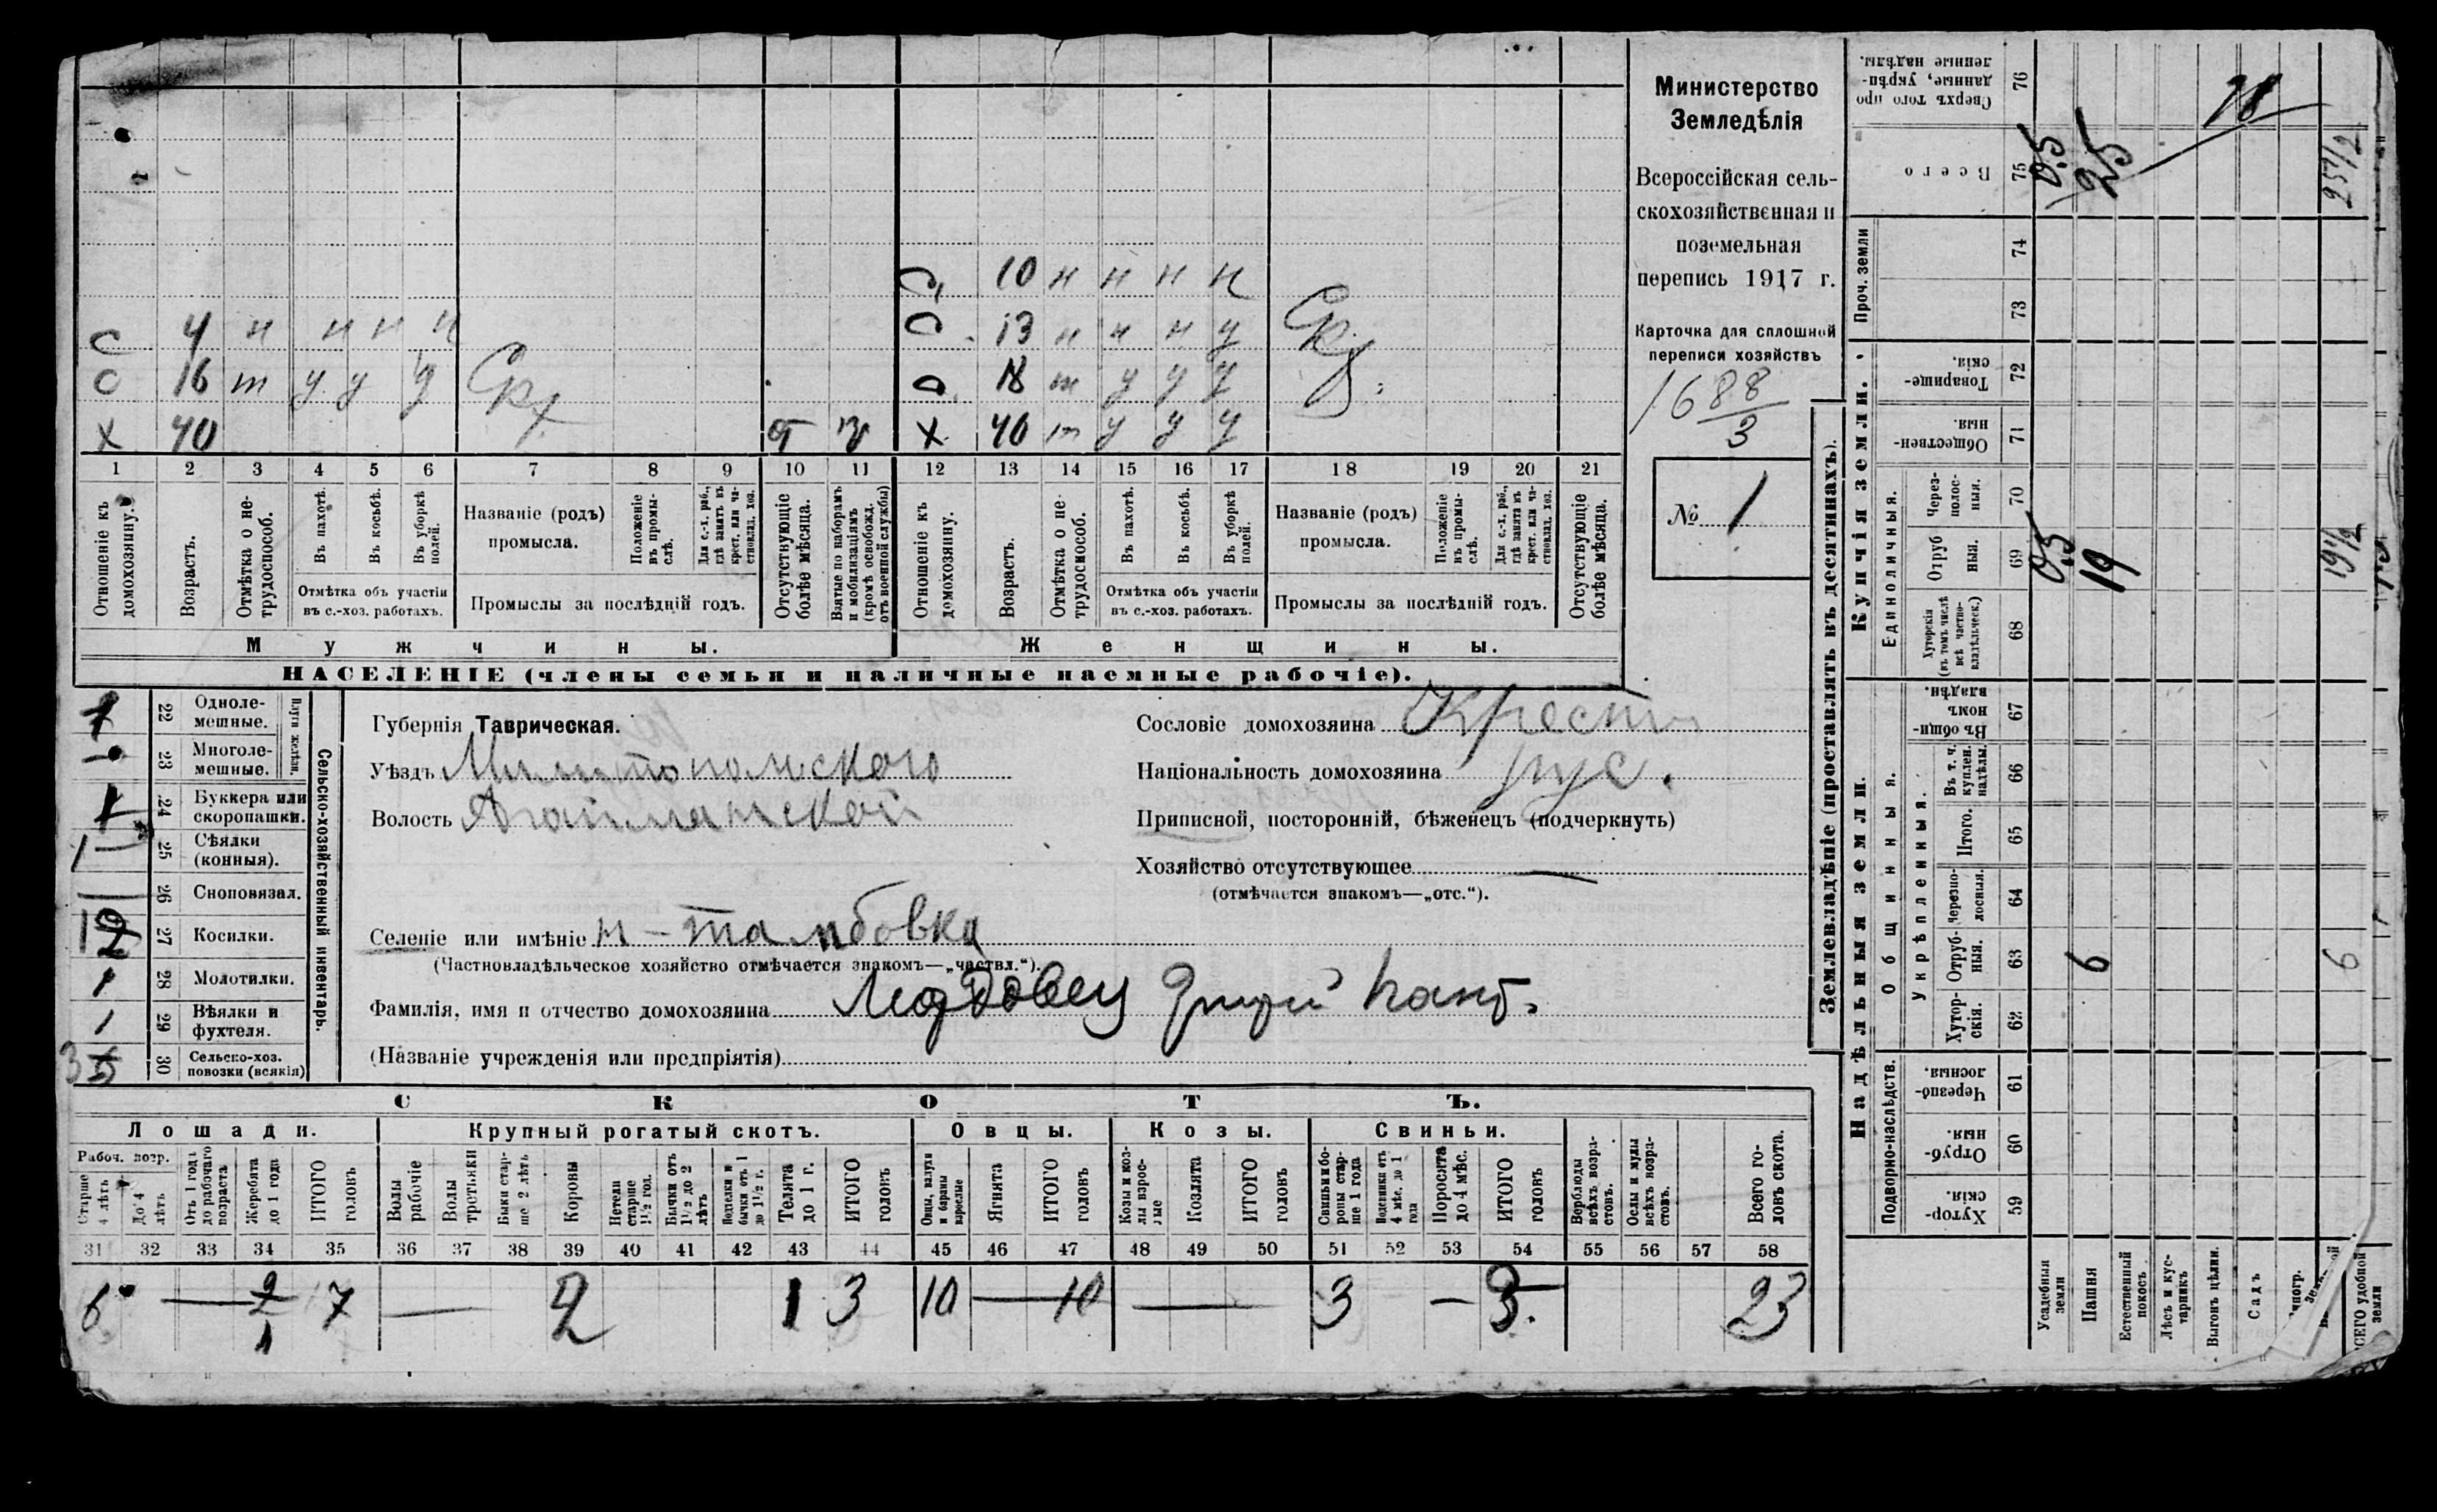 Министерство
Земледѣлія
Всероссійская сель-
скохозяйственная и
поземельная
перепись 1917 г.
Карточка для сплошной
переписи хозяйствъ
1688
3
№ 1
С. 10 н н н н
С 4 н н н н
С 13 н н н у Ск
С 16 т у у у Скх
С 18 т у у у
Х 40 от
Х 40 т у у у
1 2 3 4 5 6 7 8 9 10 11 12 13 14 15 16 17 18 19 20 21
Отношеніе къ домохозяину.
Возрастъ.
Отмѣтка о не-трудоспособ.
Въ пахотѣ.
Въ косьбѣ.
Въ уборкѣ полей.
Отмѣтка объ участіи въ с.-хоз. работахъ.
Названіе (родъ) промысла.
Положеніе въ промы-слѣ.
Для с.-х. раб., гдѣ занятъ въ крест. или ча-стновлад. хоз.
Промыслы за послѣдній годъ.
Отсутствующіе болѣе мѣсяца.
Взятые по наборамъ и мобилизаціямъ (кромѣ освобожд. отъ военной службы)
Отношеніе къ домохозяину.
Возрастъ.
Отмѣтка о не-трудоспособ.
Въ пахотѣ.
Въ косьбѣ.
Въ уборкѣ полей.
Отмѣтка объ участіи въ с.-хоз. работахъ.
Названіе (родъ) промысла.
Положеніе въ промы-слѣ.
Для с.-х. раб., гдѣ занята въ крест. или ча-стновлад. хоз.
Промыслы за послѣдній годъ.
Отсутствующіе болѣе мѣсяца.
Мужчины.
Женщины.
НАСЕЛЕНІЕ (члены семьи и наличные наемные рабочіе).
Сельско-хозяйственный инвентарь.
Плуги желѣзн.
22 Одноле-мешные.
23 Многоле-мешные.
24 Буккера или скоропашки.
25 Сѣялки (конныя).
26 Сноповязал.
27 Косилки.
1 28 Молотилки.
1 29 Вѣялки и фухтеля.
30 Сельско-хоз. повозки (всякія)
Губернія Таврическая.
Уѣздъ Мелитопольского
Волость Агайманской
Селеніе или имѣніе Н-Тамбовка
(Частновладѣльческое хозяйство отмѣчается знакомъ—„частвл.“).
Фамилія, имя и отчество домохозяина
(Названіе учрежденія или предпріятія)
Сословіе домохозяина Крест
Національность домохозяина рус.
Приписной, посторонній, бѣженецъ (подчеркнуть)
Хозяйство отсутствующее —
(отмѣчается знакомъ—„отс.“).
СКОТЪ.
Лошади. Крупный рогатый скотъ. Овцы. Козы. Свиньи.
Рабоч. возр.
Старше 4 лѣтъ
До 4 лѣтъ
Отъ 1 года до рабочаго возраста
Жеребята до 1 года
ИТОГО головъ
Волы рабочіе
Волы третьяки
Быки стар-ше 2 лѣтъ
Коровы
Нетели старше 1½ год.
Бычки отъ 1½ до 2 лѣтъ
Подтелки и бычки отъ 1 до 1½ г.
Телята до 1 г.
ИТОГО головъ
Овцы, валухи и бараны взрослые
Ягнята
ИТОГО головъ
Козы и коз-лы взрос-лые
Козлята
ИТОГО головъ
Свиньи и бо-ровы стар-ше 1 года
Подсвинки отъ 4 мѣс. до 1 года
Поросята до 4 мѣс.
ИТОГО головъ
Верблюды всѣхъ возра-стовъ.
Ослы и мулы всѣхъ возра-стовъ.
Всего го-ловъ скота.
31 32 33 34 35 36 37 38 39 40 41 42 43 44 45 46 47 48 49 50 51 52 53 54 55 56 57 58
6 — 2 1 7 — 2 1 3 10 — 10 — 3 — 3. 23
Землевладѣніе (проставлять въ десятинахъ).
Купчія земли.
Надѣльныя земли.
Сверхъ того про данные, укрѣп-ленные надѣлы. 76
Всего 75
Проч. земли 74 73
Товарище-скія. 72
Обществен-ныя. 71
Единоличныя.
Через-полос-ныя. 70
Отруб ныя. 69
Хуторскія (въ томъ числѣ всѣ частно-владѣльческ.) 68
Общинныя.
Въ общи-номъ владѣн. 67
Укрѣпленныя.
Въ т. ч. куплен. надѣлы. 66
Итого. 65
Черезпо-лосныя. 64
Отруб-ныя. 63
Хутор-скія. 62
Подворно-наслѣдств.
Черезпо-лосныя. 61
Отруб-ныя. 60
Хутор-скія. 59
Усадебныя земли
Пашня
Естественный покосъ
Лѣсъ и кус-тарникъ
Выгонъ цѣлин.
Садъ
0.5 25 78 25 1/2
0.5 19 19 1/2
6 6